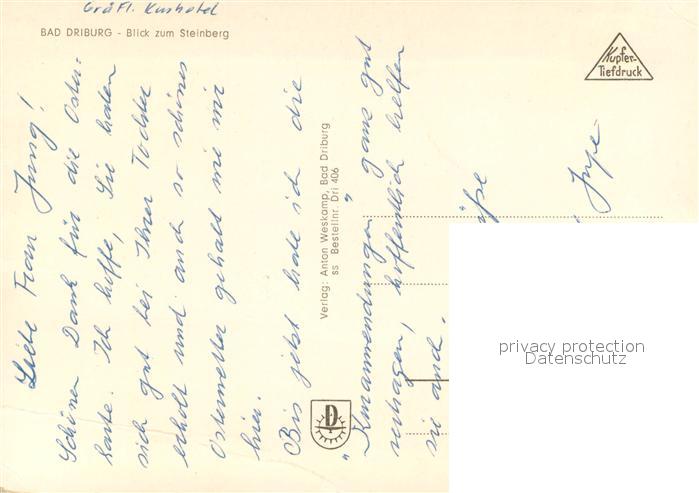 Gräfl. Kurhotel
BAD DRIBURG - Blick zum Steinberg
Kupfer-
Tiefdruck
Liebe Frau Jung!
Schönen Dank für die Oster-
karte. Ich hoffe, Sie haben
sich gut bei Ihrer Tochter
erholt und auch so schönes
Osterwetter gehabt wie wir
hier.
Bis jetzt habe ich die
"Kuranwendungen" ganz gut
vertragen, hoffentlich helfen
sie auch.
Verlag: Anton Weskamp, Bad Driburg
ss Bestellnr. Dri 406
D
privacy protection
Datenschutz